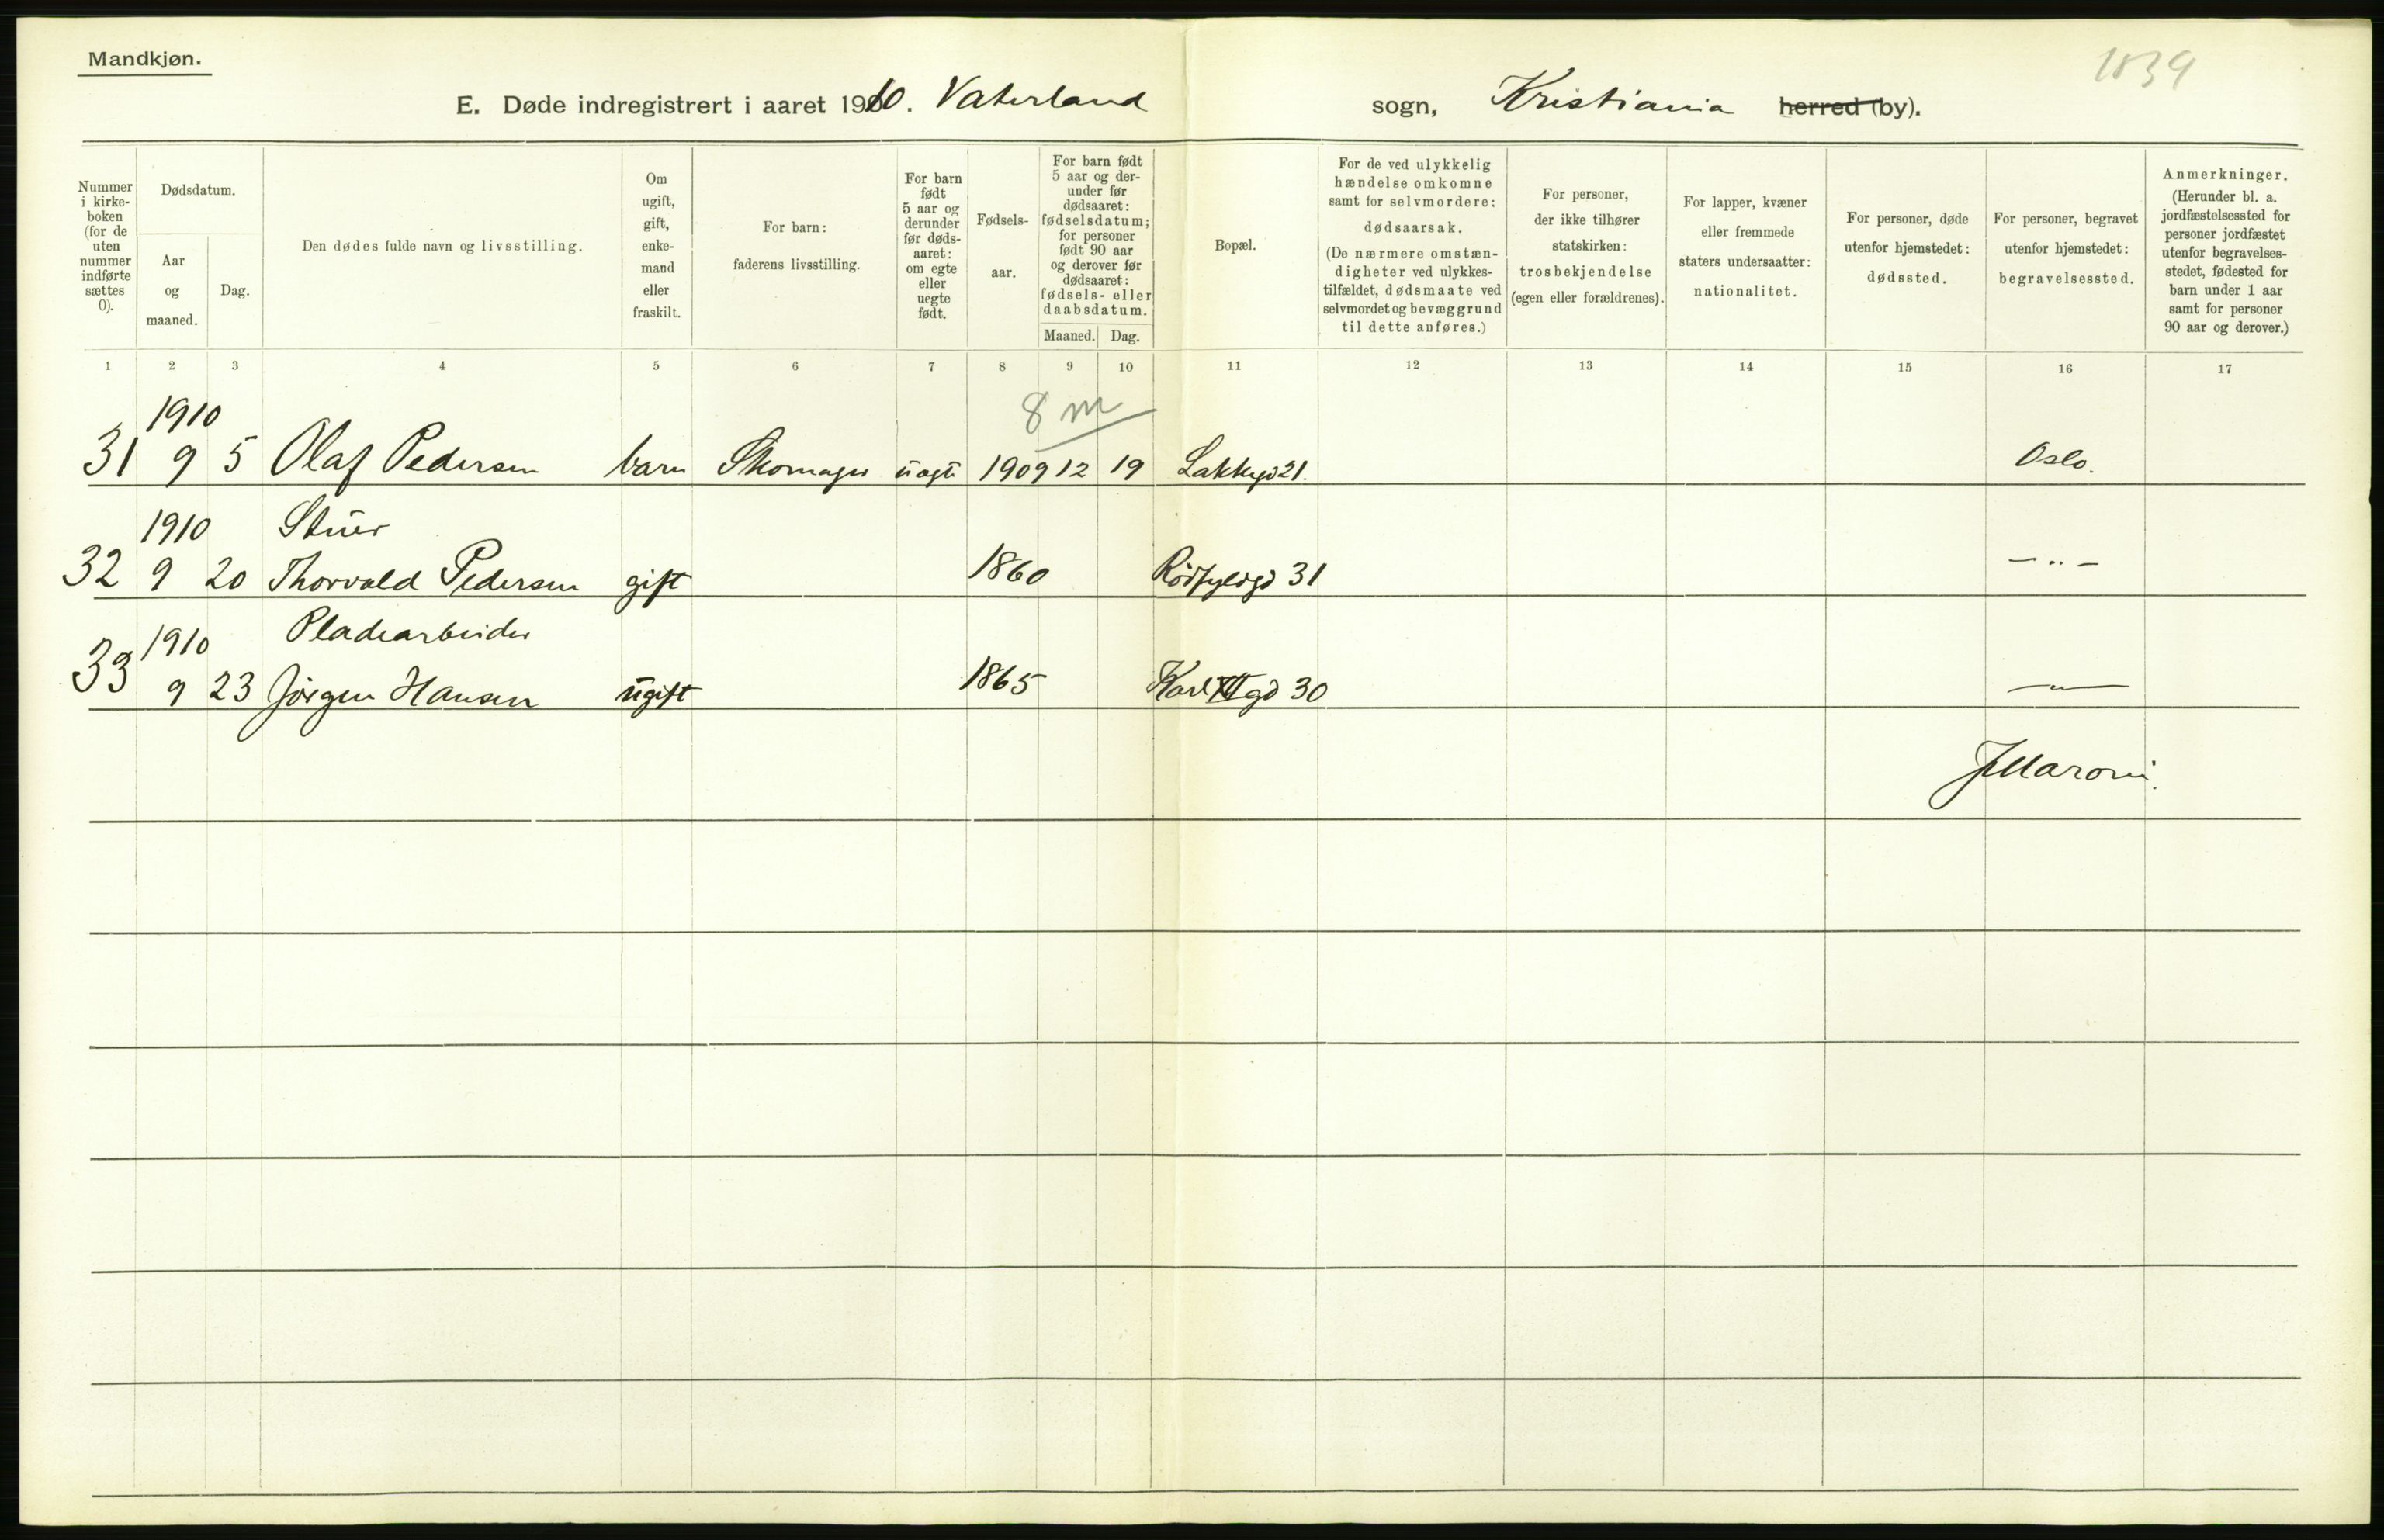 Mandkjøn.
1839
E. Døde indregistrert i aaret 1910. Vaterland sogn, Kristiania herred (by).
Nummer i kirke-boken (for de uten nummer indførte sættes 0).
Dødsdatum.
Aar og maaned.
Dag.
Den dødes fulde navn og livsstilling.
Om ugift, gift, enke-mand eller fraskilt.
For barn: faderens livsstilling.
For barn født 5 aar og derunder før døds-aaret: om egte eller uegte født.
Fødsels-aar.
For barn født 5 aar og der-under før dødsaaret: fødselsdatum; for personer født 90 aar og derover før dødsaaret: fødsels- eller daabsdatum.
Maaned. Dag.
Bopæl.
For de ved ulykkelig hændelse omkomne samt for selvmordere: dødsaarsak. (De nærmere omstæn-digheter ved ulykkes-tilfældet, dødsmaate ved selvmordet og bevæggrund til dette anføres.)
For personer, der ikke tilhører statskirken: trosbekjendelse (egen eller forældrenes).
For lapper, kvæner eller fremmede staters undersaatter: nationalitet.
For personer, døde utenfor hjemstedet: dødssted.
For personer, begravet utenfor hjemstedet: begravelsessted.
Anmerkninger. (Herunder bl. a. jordfæstelsessted for personer jordfæstet utenfor begravelses-stedet, fødested for barn under 1 aar samt for personer 90 aar og derover.)
1 2 3 4 5 6 7 8 9 10 11 12 13 14 15 16 17
1910 8 m
31 9 5 Olaf Pedersen barn Skomager uegte 1909 12 19 Lakkegd 21. Oslo.
1910 Stuer
32 9 20 Thorvald Pedersen gift 1860 Rødfyldgd 31 — „ —
1910 Pladearbeider
33 9 23 Jörgen Hansen ugift 1865 Karl XII gd 30 — „ —
JMaroni.